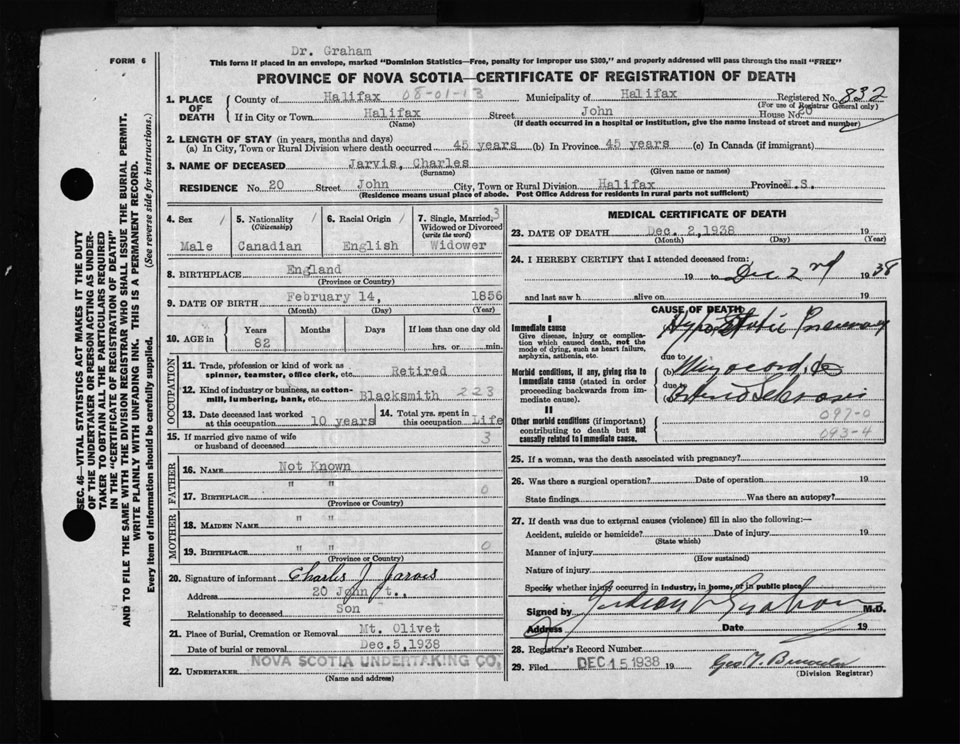 Dr. Graham
FORM 6
This form if placed in an envelope, marked "Dominion Statistics—Free, penalty for improper use $300," and properly addressed will pass through the mail "FREE"
PROVINCE OF NOVA SCOTIA—CERTIFICATE OF REGISTRATION OF DEATH
1. PLACE OF DEATH
County of Halifax 08-01-13 Municipality of Halifax Registered No. 832
(For use of Registrar General only)
If in City or Town Halifax Street John House No. 20
(Name) (If death occurred in a hospital or institution, give the name instead of street and number)
2. LENGTH OF STAY (in years, months and days)
(a) In City, Town or Rural Division where death occurred 45 years (b) In Province 45 years (c) In Canada (if immigrant)
3. NAME OF DECEASED Jarvis, Charles
(Surname) (Given name or names)
RESIDENCE No. 20 Street John City, Town or Rural Division Halifax Province N.S.
(Residence means usual place of abode. Post Office Address for residents in rural parts not sufficient)
4. Sex / 5. Nationality / 6. Racial Origin / 7. Single, Married, 3
(Citizenship) Widowed or Divorced
(write the word)
Male Canadian English Widower
8. BIRTHPLACE England
(Province or Country)
9. DATE OF BIRTH February 14, 1856
(Month) (Day) (Year)
10. AGE in Years Months Days If less than one day old
82 hrs. or min.
OCCUPATION
11. Trade, profession or kind of work as
spinner, teamster, office clerk, etc. Retired
12. Kind of industry or business, as cotton-
mill, lumbering, bank, etc. Blacksmith 223
13. Date deceased last worked
at this occupation 10 years
14. Total yrs. spent in
this occupation Life
15. If married give name of wife
or husband of deceased 3
FATHER
16. NAME Not Known
17. BIRTHPLACE " " 0
(Province or Country)
MOTHER
18. MAIDEN NAME " "
19. BIRTHPLACE " " 0
(Province or Country)
20. Signature of informant Charles J Jarvis
Address 20 John t.,
Relationship to deceased Son
21. Place of Burial, Cremation or Removal Mt. Olivet
Date of burial or removal Dec.5,1938
22. UNDERTAKER NOVA SCOTIA UNDERTAKING CO.
(Name and address)
MEDICAL CERTIFICATE OF DEATH
23. DATE OF DEATH Dec. 2,1938 19
(Month) (Day) (Year)
24. I HEREBY CERTIFY that I attended deceased from:
19 to Dec 2nd 1938
and last saw h alive on 19
CAUSE OF DEATH
I
Immediate cause Hypostatic Pneumonia
Give disease, injury or complica-
tion which caused death, not the
mode of dying, such as heart failure,
asphyxia, asthenia, etc.
due to
Morbid conditions, if any, giving rise to
immediate cause (stated in order
proceeding backwards from im-
mediate cause).
(b) Myocarditis
due to
Arterio Sclerosis
II
Other morbid conditions (if important)
contributing to death but not
causally related to immediate cause.
097-0
093-4
25. If a woman, was the death associated with pregnancy?
26. Was there a surgical operation? Date of operation 19
State findings Was there an autopsy?
27. If death was due to external causes (violence) fill in also the following:—
Accident, suicide or homicide? Date of injury 19
(State which)
Manner of injury
(How sustained)
Nature of injury
Specify whether injury occurred in industry, in home, or in public place
Signed by Graham M.D.
Address Date 19
28. Registrar's Record Number
29. Filed DEC 15 1938 19
(Division Registrar)
SEC. 46—VITAL STATISTICS ACT MAKES IT THE DUTY
OF THE UNDERTAKER OR PERSON ACTING AS UNDER-
TAKER TO OBTAIN ALL THE PARTICULARS REQUIRED
IN THE "CERTIFICATE OF REGISTRATION OF DEATH"
AND TO FILE THE SAME WITH THE DIVISION REGISTRAR WHO SHALL ISSUE THE BURIAL PERMIT.
WRITE PLAINLY WITH UNFADING INK. THIS IS A PERMANENT RECORD.
Every item of information should be carefully supplied. (See reverse side for instructions.)